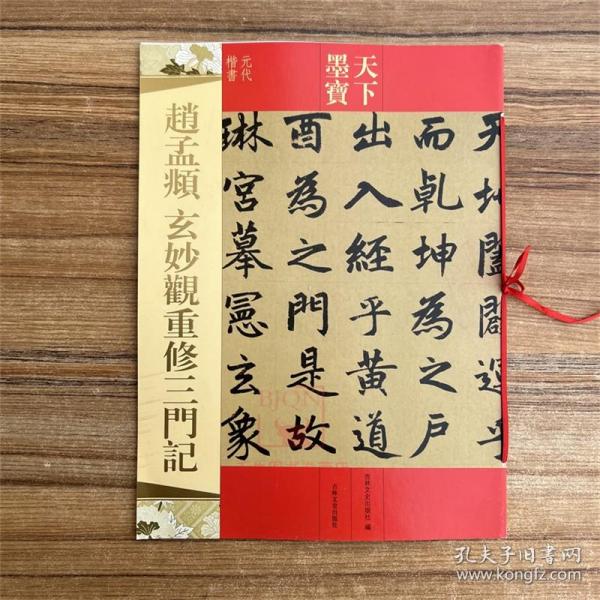 天下
墨寶
元代
楷書
趙孟頫 玄妙觀重修三門記
天地闔闢運乎
而乹坤為之戶
出入經乎黃道
酉為之門是故
琳宮摹憲玄象
吉林文史出版社 編
吉林文史出版社
BJON
孔夫子旧书网
www.kongfz.com